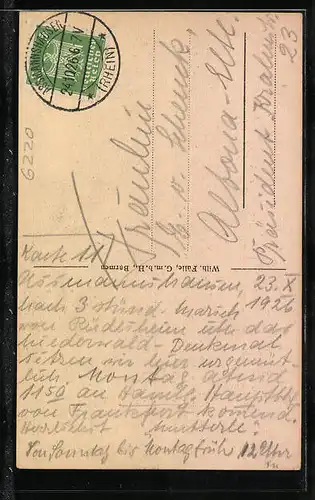 ASSMANNSHAUSEN
24.10.26.6-7V
(RHEIN)
Deutsches Reich
6220
Fräulein
E. v. Schenck,
Altona-Elbe.
Präsident Krahn-Str.
23
Wilh. Fülle, G.m.b.H., Barmen
Karte 11
Assmannshausen, 23. X
1926
Nach 3 stünd. Marsch
von Rüdesheim über das
Niederwald-Denkmal
sitzen wir hier urgemüt-
lich. Montag abend
11 59 an Hambg. Hauptbhf.
von Frankfurt kommend.
Herzlichst "Mutterle"
Von Sonntag bis Montag früh 12 Uhr